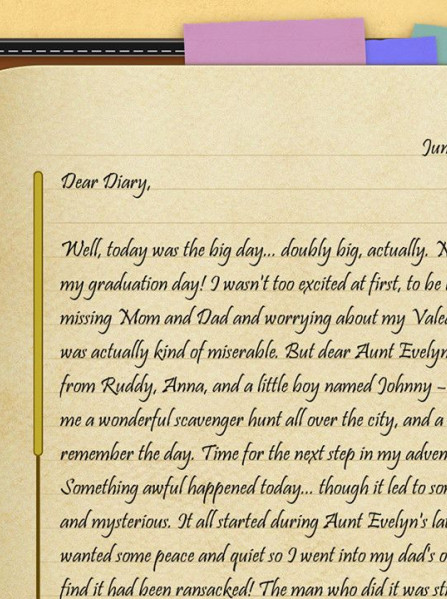 Jun
Dear Diary,
Well, today was the big day... doubly big, actually.
my graduation day! I wasn't too excited at first, to be
missing Mom and Dad and worrying about my Vale
was actually kind of miserable. But dear Aunt Evelyn
from Ruddy, Anna, and a little boy named Johnny –
me a wonderful scavenger hunt all over the city, and a
remember the day. Time for the next step in my adven
Something awful happened today... though it led to so
and mysterious. It all started during Aunt Evelyn's la
wanted some peace and quiet so I went into my dad's o
find it had been ransacked! The man who did it was st